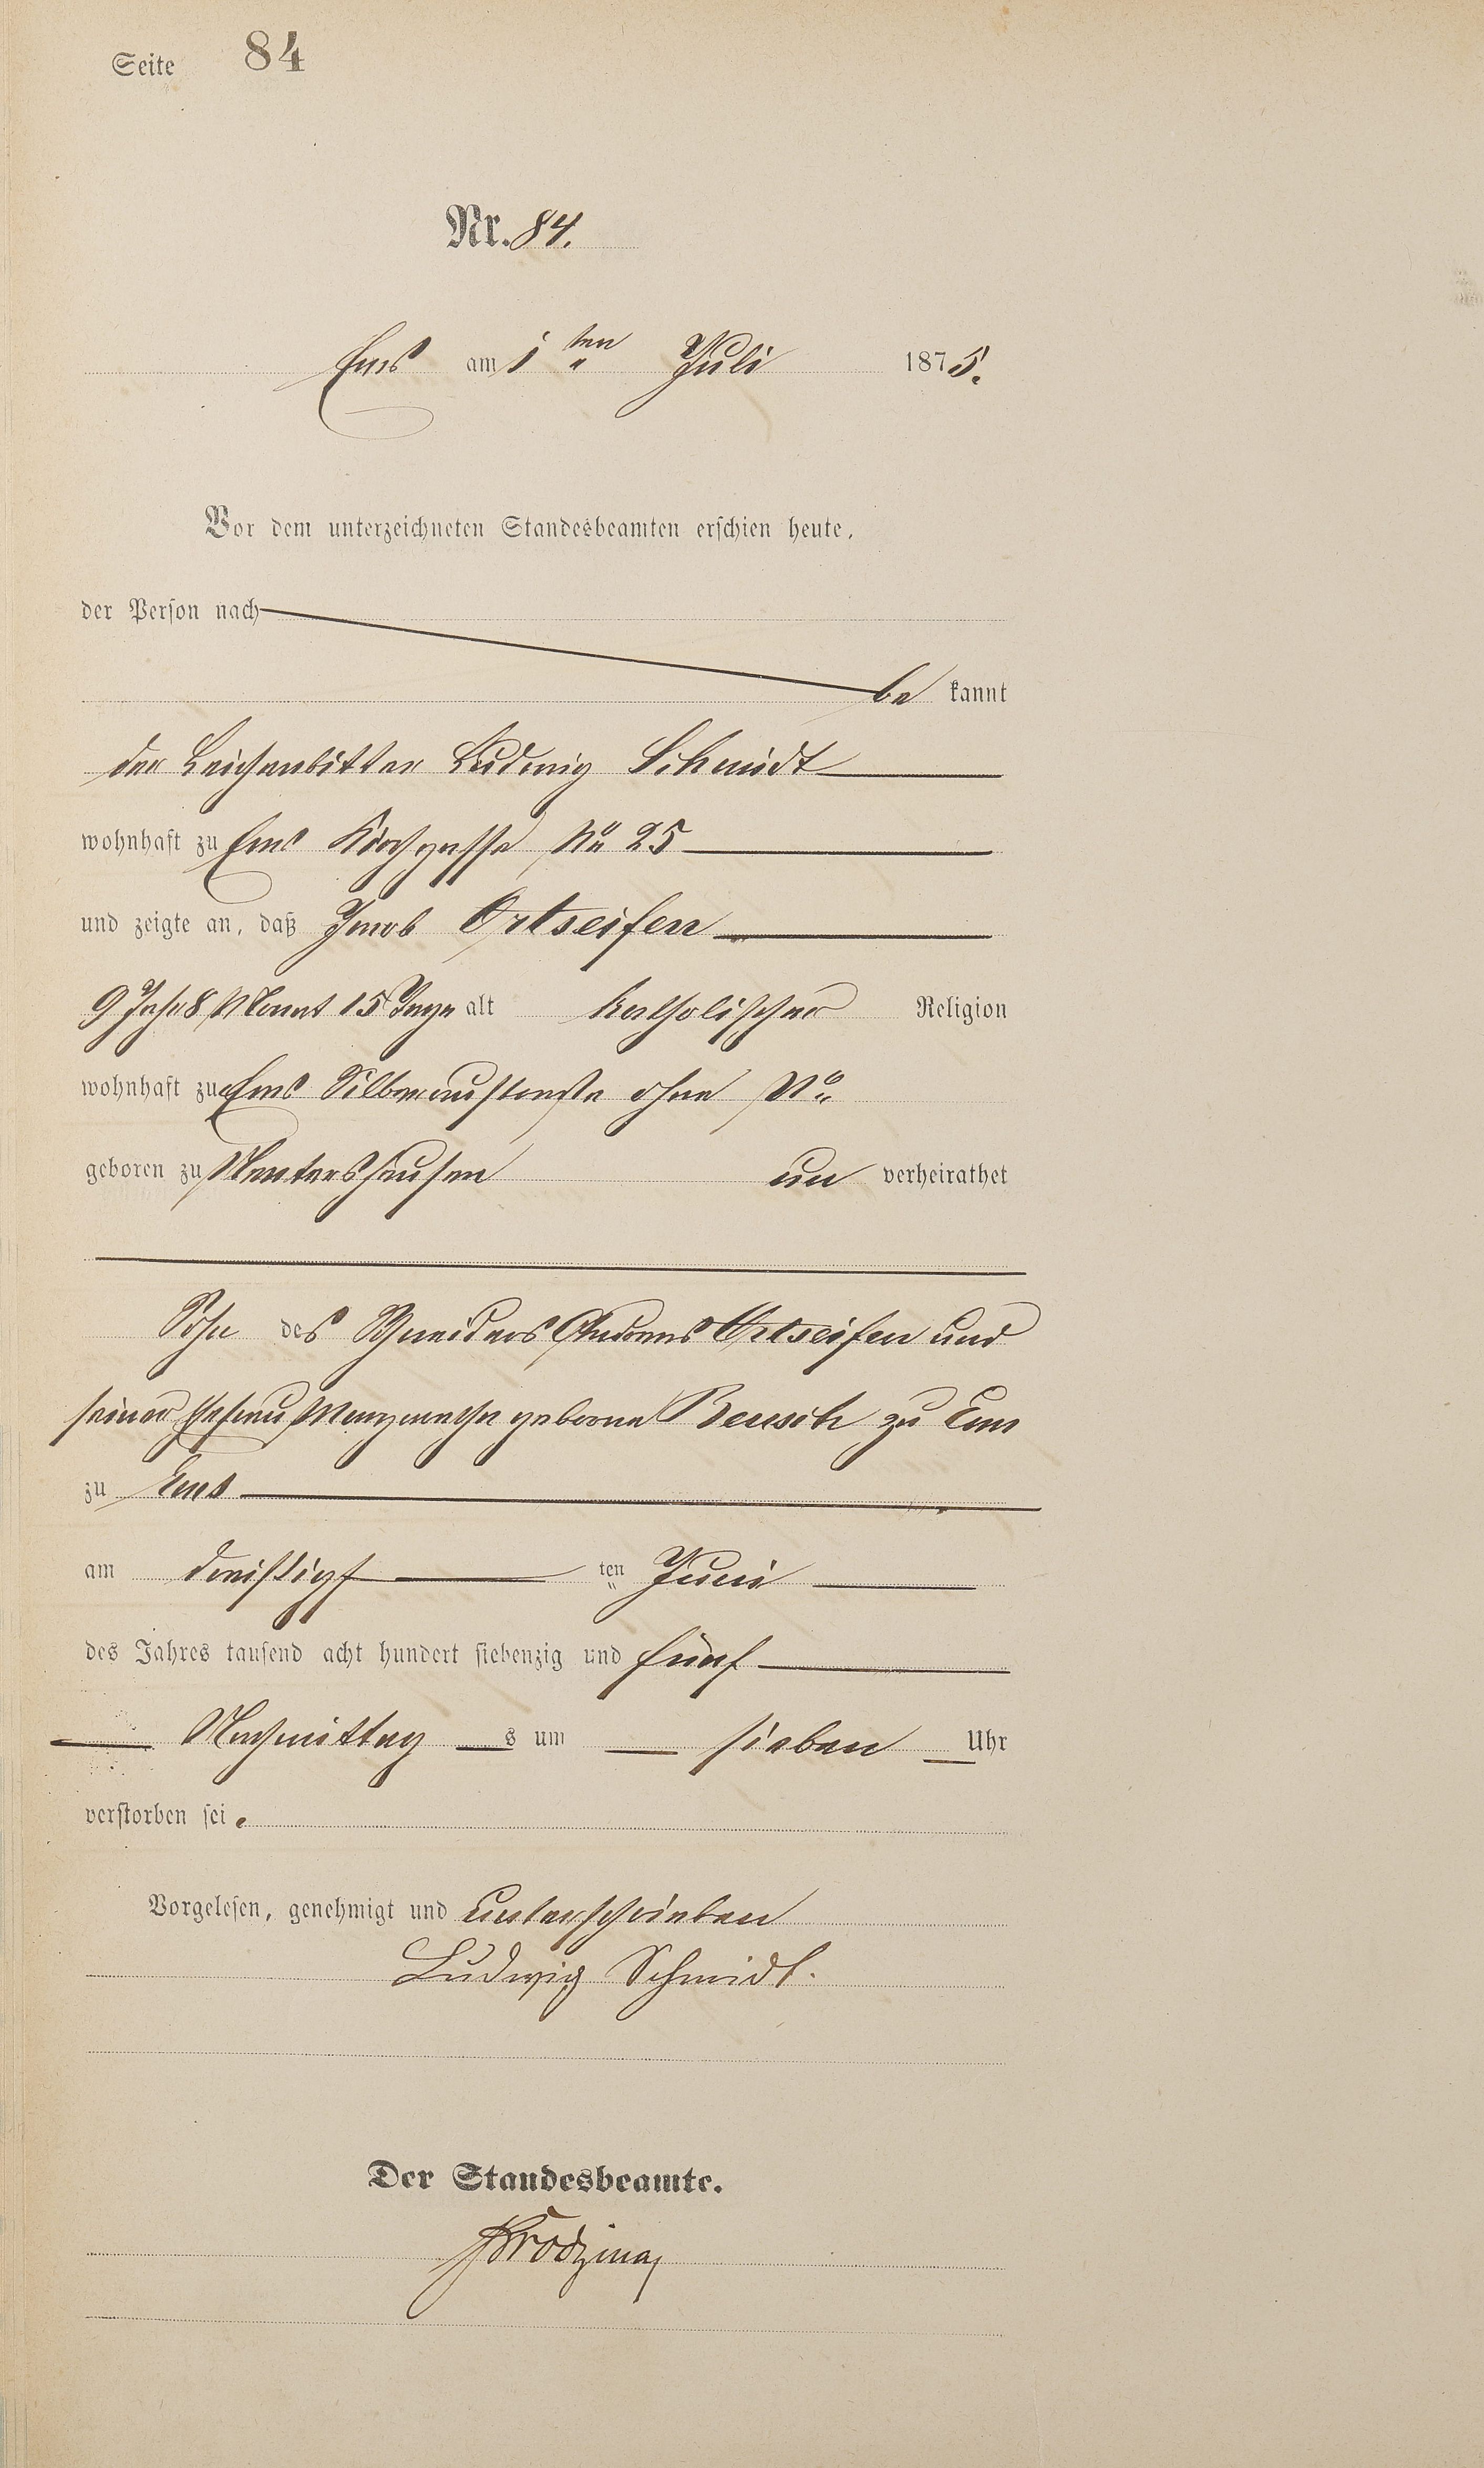 Seite 84
Nr. 84.
Ems am 1ten Juli 1875.
Vor dem unterzeichneten Standesbeamten erschien heute,
der Person nach
be kannt
der Leichenbitter Ludwig Schmidt
wohnhaft zu Ems Kirchgasse No 25
und zeigte an, daß Jacob Ortseifen
9 Jahr 8 Monat 15 Tage alt katholischer Religion
wohnhaft zu Ems Silberaustraße ohne No
geboren zu Nentershausen un verheirathet
Sohn des Schneiders Andreas Ortseifen und
seiner Ehefrau Margarethe geborene zu Ems
zu Ems
am dreißigst ten Juni
des Jahres tausend acht hundert siebenzig und fünf
Nachmittag s um sieben Uhr
verstorben sei.
Vorgelesen, genehmigt und unterschrieben
Ludwig Schmidt.
Der Standesbeamte.